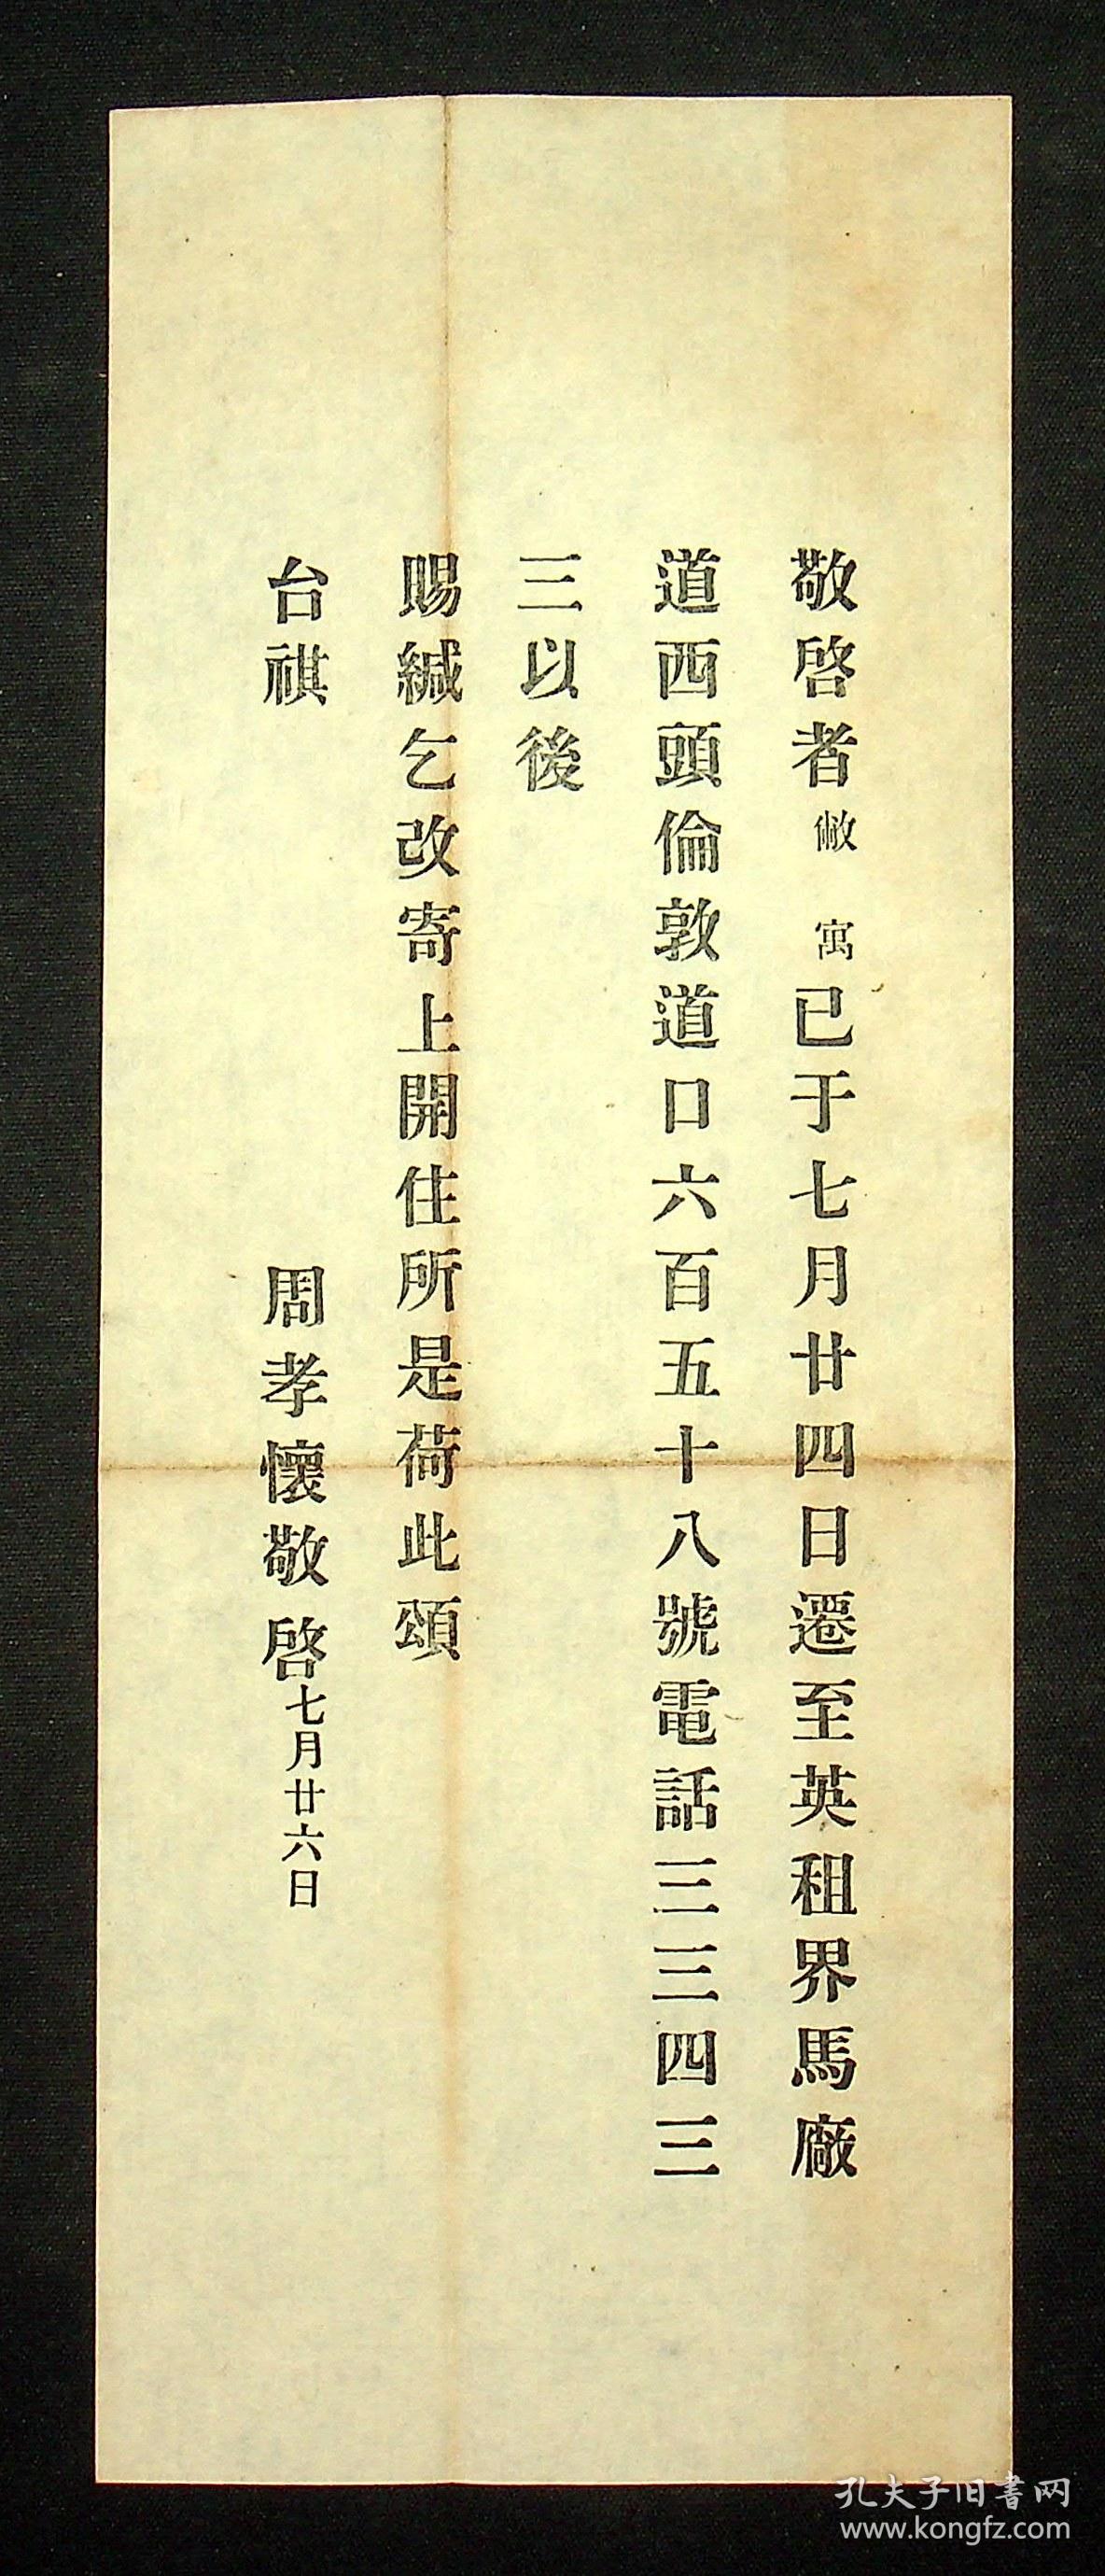 敬啓者敝寓已于七月廿四日遷至英租界馬廠
道西頭倫敦道口六百五十八號電話三三四三
三以後
賜緘乞改寄上開住所是荷此頌
台祺
周孝懷敬啓七月廿六日
孔夫子旧書网
www.kongfz.com